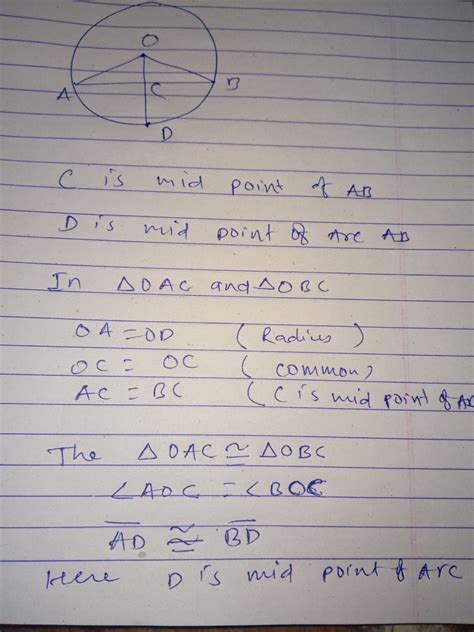 O
A
C
B
D
C is mid point of AB
D is mid point of Arc AB
In △OAC and △OBC
OA = OD (Radius)
OC = OC (common)
AC = BC (C is mid point of
The △OAC ≅ △OBC
∠AOC = ∠BOC
AD ≅ BD
Here D is mid point of Arc